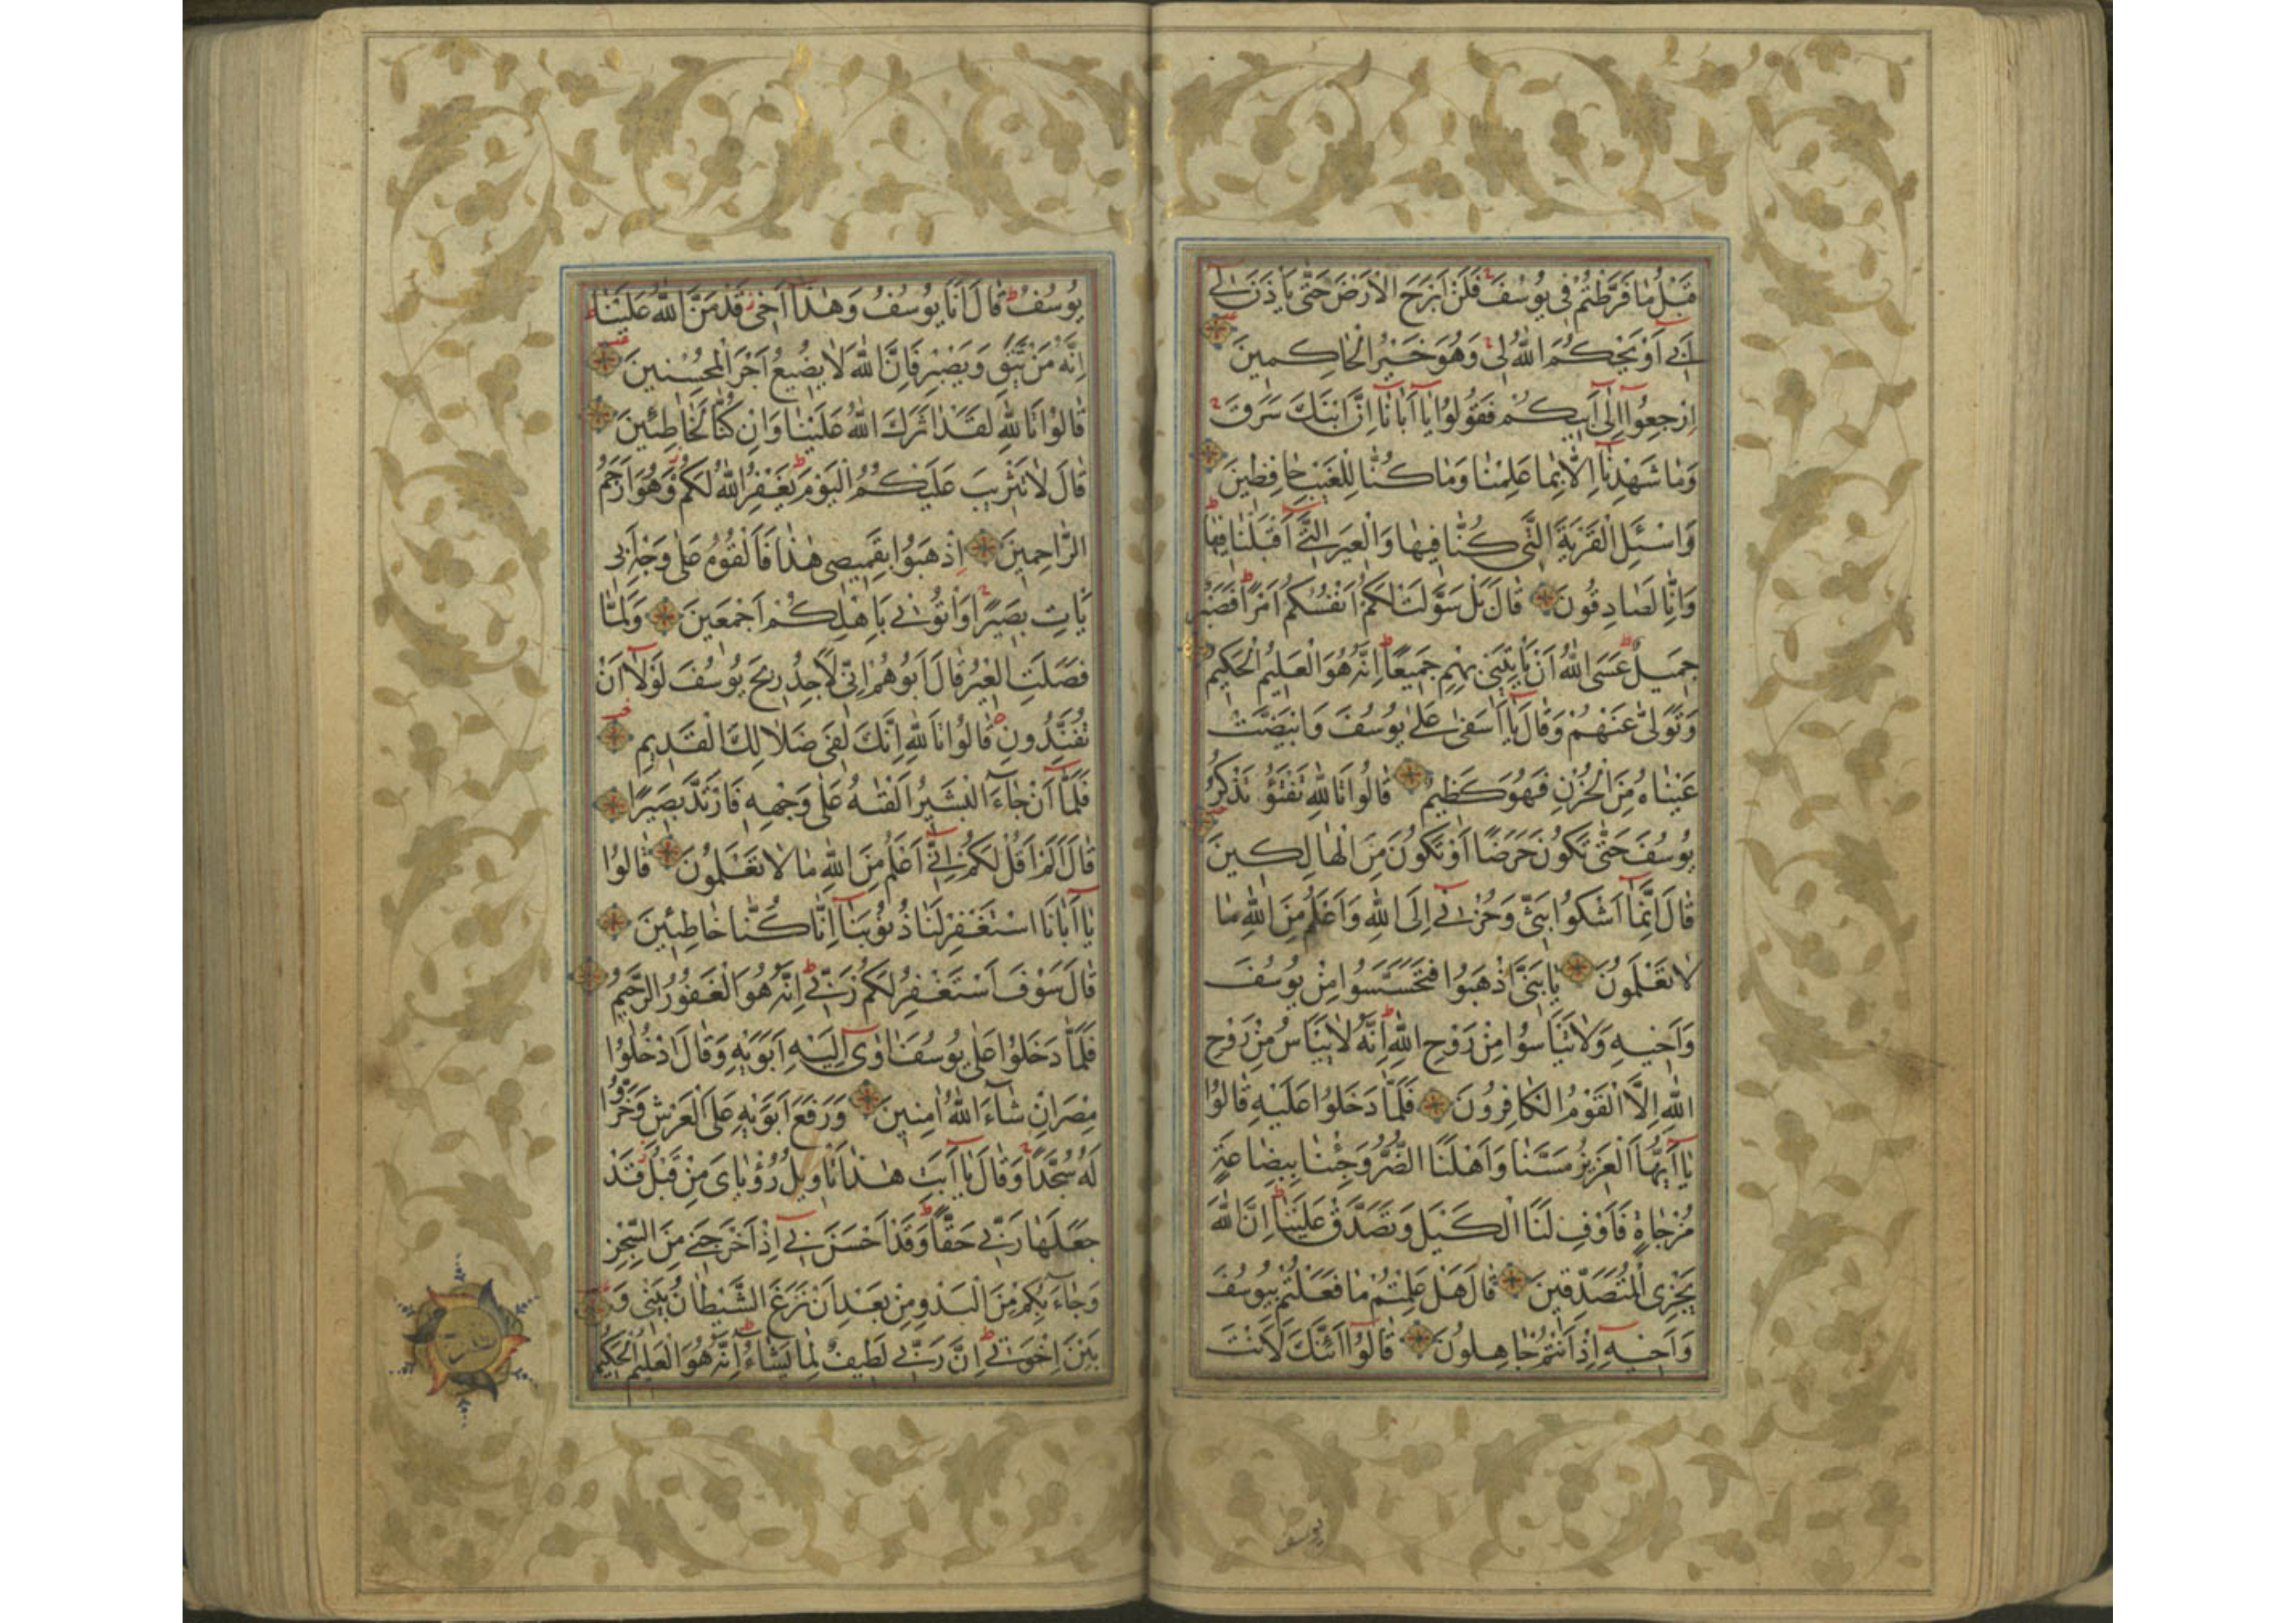 قَبْلُ مٰا فَرَّطْتُمْ فِى يُوسُفَ فَلَنْ اَبْرَحَ الْاَرْضَ حَتّٰى يَاْذَنَ لٖى
اَبٖى اَوْ يَحْكُمَ اللّٰهُ لٖى وَهُوَ خَيْرُ الْحٰاكِمينَ
اِرْجِعُوا اِلٰى اَبيكُمْ فَقُولُوا يٰا اَبٰانٰا اِنَّ ابْنَكَ سَرَقَ
وَمٰا شَهِدْنٰا اِلّٰا بِمٰا عَلِمْنٰا وَمٰا كُنّٰا لِلْغَيْبِ حٰافِظينَ
وَاسْئَلِ الْقَرْيَةَ الَّتى كُنّٰا فيهٰا وَالْعيرَ الَّتى اَقْبَلْنٰا فيهٰا
وَاِنّٰا لَصٰادِقُونَ قٰالَ بَلْ سَوَّلَتْ لَكُمْ اَنْفُسُكُمْ اَمْرًا فَصَبْرٌ
جَميلٌ عَسَى اللّٰهُ اَنْ يَاْتِيَنى بِهِمْ جَميعًا اِنَّهُ هُوَ الْعَليمُ الْحَكيمُ
وَتَوَلّٰى عَنْهُمْ وَقٰالَ يٰا اَسَفٰى عَلٰى يُوسُفَ وَابْيَضَّتْ
عَيْنٰاهُ مِنَ الْحُزْنِ فَهُوَ كَظيمٌ قٰالُوا تَاللّٰهِ تَفْتَؤُ تَذْكُرُ
يُوسُفَ حَتّٰى تَكُونَ حَرَضًا اَوْ تَكُونَ مِنَ الْهٰالِكينَ
قٰالَ اِنَّمٰا اَشْكُوا بَثّى وَحُزْنى اِلَى اللّٰهِ وَاَعْلَمُ مِنَ اللّٰهِ مٰا
لٰا تَعْلَمُونَ يٰا بَنِىَّ اذْهَبُوا فَتَحَسَّسُوا مِنْ يُوسُفَ
وَاَخيهِ وَلٰا تَيْاَسُوا مِنْ رَوْحِ اللّٰهِ اِنَّهُ لٰا يَيْاَسُ مِنْ رَوْحِ
اللّٰهِ اِلَّا الْقَوْمُ الْكٰافِرُونَ فَلَمّٰا دَخَلُوا عَلَيْهِ قٰالُوا
يٰا اَيُّهَا الْعَزيزُ مَسَّنٰا وَاَهْلَنَا الضُّرُّ وَجِئْنٰا بِبِضٰاعَةٍ
مُزْجٰاةٍ فَاَوْفِ لَنَا الْكَيْلَ وَتَصَدَّقْ عَلَيْنٰا اِنَّ اللّٰهَ
يَجْزِى الْمُتَصَدِّقينَ قٰالَ هَلْ عَلِمْتُمْ مٰا فَعَلْتُمْ بِيُوسُفَ
وَاَخيهِ اِذْ اَنْتُمْ جٰاهِلُونَ قٰالُوا اَئِنَّكَ لَاَنْتَ
يوسف
يُوسُفُ قٰالَ اَنَا يُوسُفُ وَهٰذٰا اَخى قَدْ مَنَّ اللّٰهُ عَلَيْنٰا
اِنَّهُ مَنْ يَتَّقِ وَيَصْبِرْ فَاِنَّ اللّٰهَ لٰا يُضيعُ اَجْرَ الْمُحْسِنينَ
قٰالُوا تَاللّٰهِ لَقَدْ اٰثَرَكَ اللّٰهُ عَلَيْنٰا وَاِنْ كُنّٰا لَخٰاطِئينَ
قٰالَ لٰا تَثْريبَ عَلَيْكُمُ الْيَوْمَ يَغْفِرُ اللّٰهُ لَكُمْ وَهُوَ اَرْحَمُ
الرّٰاحِمينَ اِذْهَبُوا بِقَميصى هٰذٰا فَاَلْقُوهُ عَلٰى وَجْهِ اَبى
يَاْتِ بَصيرًا وَاْتُونى بِاَهْلِكُمْ اَجْمَعينَ وَلَمّٰا
فَصَلَتِ الْعيرُ قٰالَ اَبُوهُمْ اِنّى لَاَجِدُ ريحَ يُوسُفَ لَوْلٰا اَنْ
تُفَنِّدُونِ قٰالُوا تَاللّٰهِ اِنَّكَ لَفى ضَلٰالِكَ الْقَديمِ
فَلَمّٰا اَنْ جٰاءَ الْبَشيرُ اَلْقٰيهُ عَلٰى وَجْهِهِ فَارْتَدَّ بَصيرًا
قٰالَ اَلَمْ اَقُلْ لَكُمْ اِنّى اَعْلَمُ مِنَ اللّٰهِ مٰا لٰا تَعْلَمُونَ قٰالُوا
يٰا اَبٰانَا اسْتَغْفِرْ لَنٰا ذُنُوبَنٰا اِنّٰا كُنّٰا خٰاطِئينَ
قٰالَ سَوْفَ اَسْتَغْفِرُ لَكُمْ رَبّى اِنَّهُ هُوَ الْغَفُورُ الرَّحيمُ
فَلَمّٰا دَخَلُوا عَلٰى يُوسُفَ اٰوٰى اِلَيْهِ اَبَوَيْهِ وَقٰالَ ادْخُلُوا
مِصْرَ اِنْ شٰاءَ اللّٰهُ اٰمِنينَ وَرَفَعَ اَبَوَيْهِ عَلَى الْعَرْشِ وَخَرُّوا
لَهُ سُجَّدًا وَقٰالَ يٰا اَبَتِ هٰذٰا تَاْويلُ رُؤْيٰاىَ مِنْ قَبْلُ قَدْ
جَعَلَهٰا رَبّى حَقًّا وَقَدْ اَحْسَنَ بى اِذْ اَخْرَجَنى مِنَ السِّجْنِ
وَجٰاءَ بِكُمْ مِنَ الْبَدْوِ مِنْ بَعْدِ اَنْ نَزَغَ الشَّيْطٰانُ بَيْنى وَ
بَيْنَ اِخْوَتى اِنَّ رَبّى لَطيفٌ لِمٰا يَشٰاءُ اِنَّهُ هُوَ الْعَليمُ الْحَكيمُ